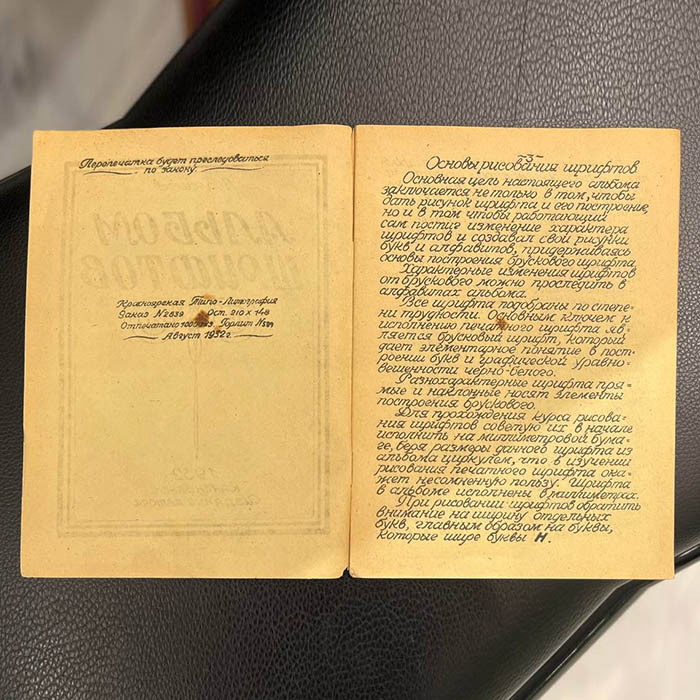 Перепечатка будет преследоваться
по закону.
АЛЬБОМ
ШРИФТОВ
Красноярская Типо-Литография
Заказ №2839 Фст. 210 х 148
Отпечатано экз. Горлит №
Август 1932 г.
-3-
Основы рисования шрифтов
Основная цель настоящего альбома
заключается не только в том, чтобы
дать рисунок шрифта и его построение,
но и в том чтобы работающий
сам постиг изменение характера
шрифтов и создавал свои рисунки
букв и алфавитов, придерживаясь
основы построения брускового шрифта.
Характерные изменения шрифтов
от брускового можно проследить в
алфавитах альбома.
Все шрифта подобраны по степе=
ни трудности. Основным ключем к
исполнению печатного шрифта яв=
ляется брусковый шрифт, который
дает элементарное понятие в пост=
роении букв и графической уравно=
вешенности черно-белого.
Разнохарактерные шрифта пря=
мые и наклонные носят элементы
построения брускового.
Для прохождения курса рисова=
ния шрифтов советую их в начале
исполнить на миллиметровой бума=
ге, беря размеры данного шрифта из
альбома циркулем, что в изучении
рисования печатного шрифта ока=
жет несомненную пользу. Шрифта
в альбоме исполнены в миллиметрах.
При рисовании шрифтов обратить
внимание на ширину отдельных
букв, главным образом на буквы,
которые шире буквы Н.